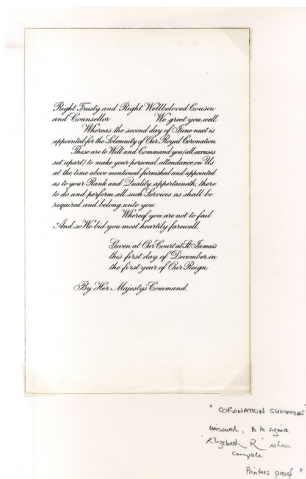 Right Trusty and Right Wellbeloved Cousin
and Counsellor We greet you well
Whereas the second day of June next is
appointed for the Solemnity of Our Royal Coronation
These are to Will and Command you (all excuses
set apart) to make your personal attendance on Us
at the time above mentioned furnished and appointed
as to your Rank and Quality appertaineth, there
to do and perform all such Services as shall be
required and belong unto you
Whereof you are not to fail
And so We bid you most heartily farewell
Given at Our Court at St. James's
this first day of December in
the first year of Our Reign.
By Her Majesty's Command.
" CORONATION SUMMONS
unissued,
" Elizabeth R " when
complete
Printers proof "